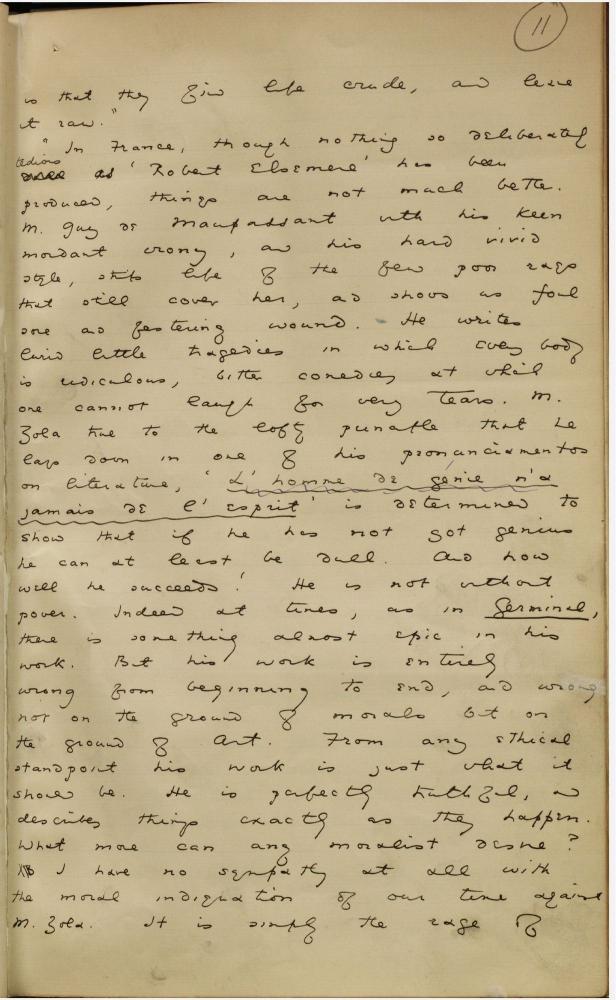 11
is that they find life crude, and leave
it raw."
"In France, though nothing so deliberately
tedious
as 'Robert Elsmere' has been
produced, things are not much better.
M. Guy de Maupassant with his keen
mordant irony, and his hard vivid
style, strips life of the few poor rags
that still cover her, and shows us foul
sore and festering wound. He writes
lurid little tragedies in which every body
is ridiculous, bitter comedies at which
one cannot laugh for very tears. M.
Zola true to the lofty principle that he
lays down in one of his pronunciamentos
on literature, 'L'homme de génie n'a
jamais de l'esprit' is determined to
show that if he has not got genius
he can at least be dull. And how
well he succeeds! He is not without
power. Indeed at times, as in Germinal,
there is something almost epic in his
work. But his work is entirely
wrong from beginning to end, and wrong
not on the ground of morals but on
the ground of Art. From any ethical
standpoint his work is just what it
should be. He is perfectly truthful, and
describes things exactly as they happen.
What more can any moralist desire?
I have no sympathy at all with
the moral indignation of our time against
M. Zola. It is simply the rage of